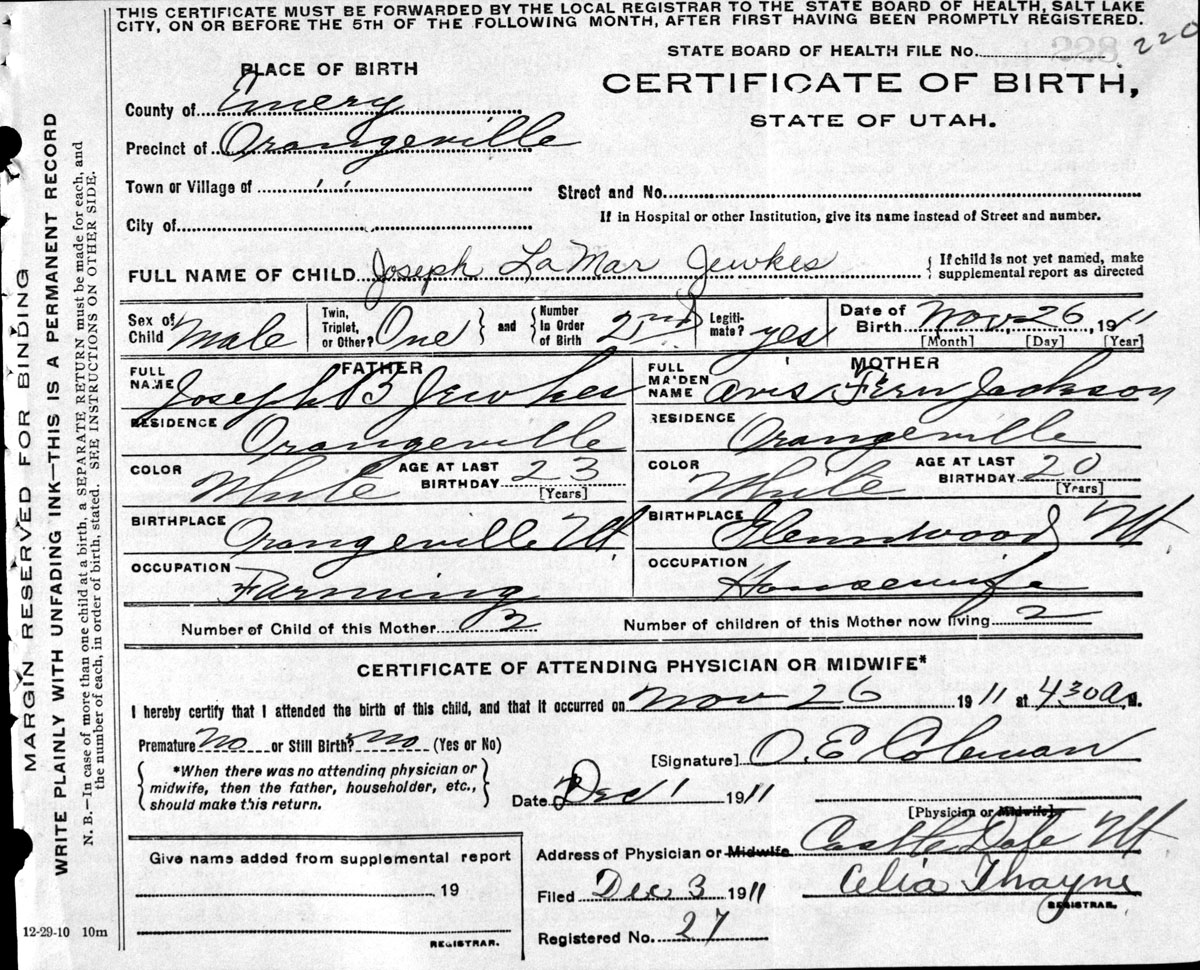 THIS CERTIFICATE MUST BE FORWARDED BY THE LOCAL REGISTRAR TO THE STATE BOARD OF HEALTH, SALT LAKE
CITY, ON OR BEFORE THE 5TH OF THE FOLLOWING MONTH, AFTER FIRST HAVING BEEN PROMPTLY REGISTERED.
220
STATE BOARD OF HEALTH FILE No. 228
PLACE OF BIRTH
CERTIFICATE OF BIRTH,
STATE OF UTAH.
County of Emery
Precinct of Orangeville
Town or Village of " "
Street and No.
City of
If in Hospital or other Institution, give its name instead of Street and number.
FULL NAME OF CHILD Joseph LaMar Jewkes { If child is not yet named, make supplemental report as directed
Sex of Child Male Twin, Triplet, or Other? One } and { Number In Order of Birth 2nd Legiti-mate? yes Date of Birth Nov. 26, 1911
[Month] [Day] [Year]
FATHER MOTHER
FULL NAME Joseph B Jewkes FULL MAIDEN NAME Avis Fern Jackson
RESIDENCE Orangeville RESIDENCE Orangeville
COLOR White AGE AT LAST BIRTHDAY 23 [Years] COLOR White AGE AT LAST BIRTHDAY 20 [Years]
BIRTHPLACE Orangeville Ut BIRTHPLACE Glennwood Ut
OCCUPATION Farming OCCUPATION Housewife
Number of Child of this Mother 2 Number of children of this Mother now living 2
CERTIFICATE OF ATTENDING PHYSICIAN OR MIDWIFE*
I hereby certify that I attended the birth of this child, and that it occurred on Nov 26 1911 at 430 a M.
Premature No or Still Birth? No (Yes or No)
[Signature] O. E Coleman
{ *When there was no attending physician or midwife, then the father, householder, etc., should make this return. }
Date Dec 1 1911
[Physician or Midwife]
Give name added from supplemental report
Address of Physician or Midwife Castle Dale Ut
, 19
Filed Dec 3 1911 Celia Thayne
REGISTRAR.
Registered No. 27
REGISTRAR.
12-29-10 10m
MARGIN RESERVED FOR BINDING
WRITE PLAINLY WITH UNFADING INK—THIS IS A PERMANENT RECORD
N. B.—In case of more than one child at a birth, a SEPARATE RETURN must be made for each, and
the number of each, in order of birth, stated. SEE INSTRUCTIONS ON OTHER SIDE.